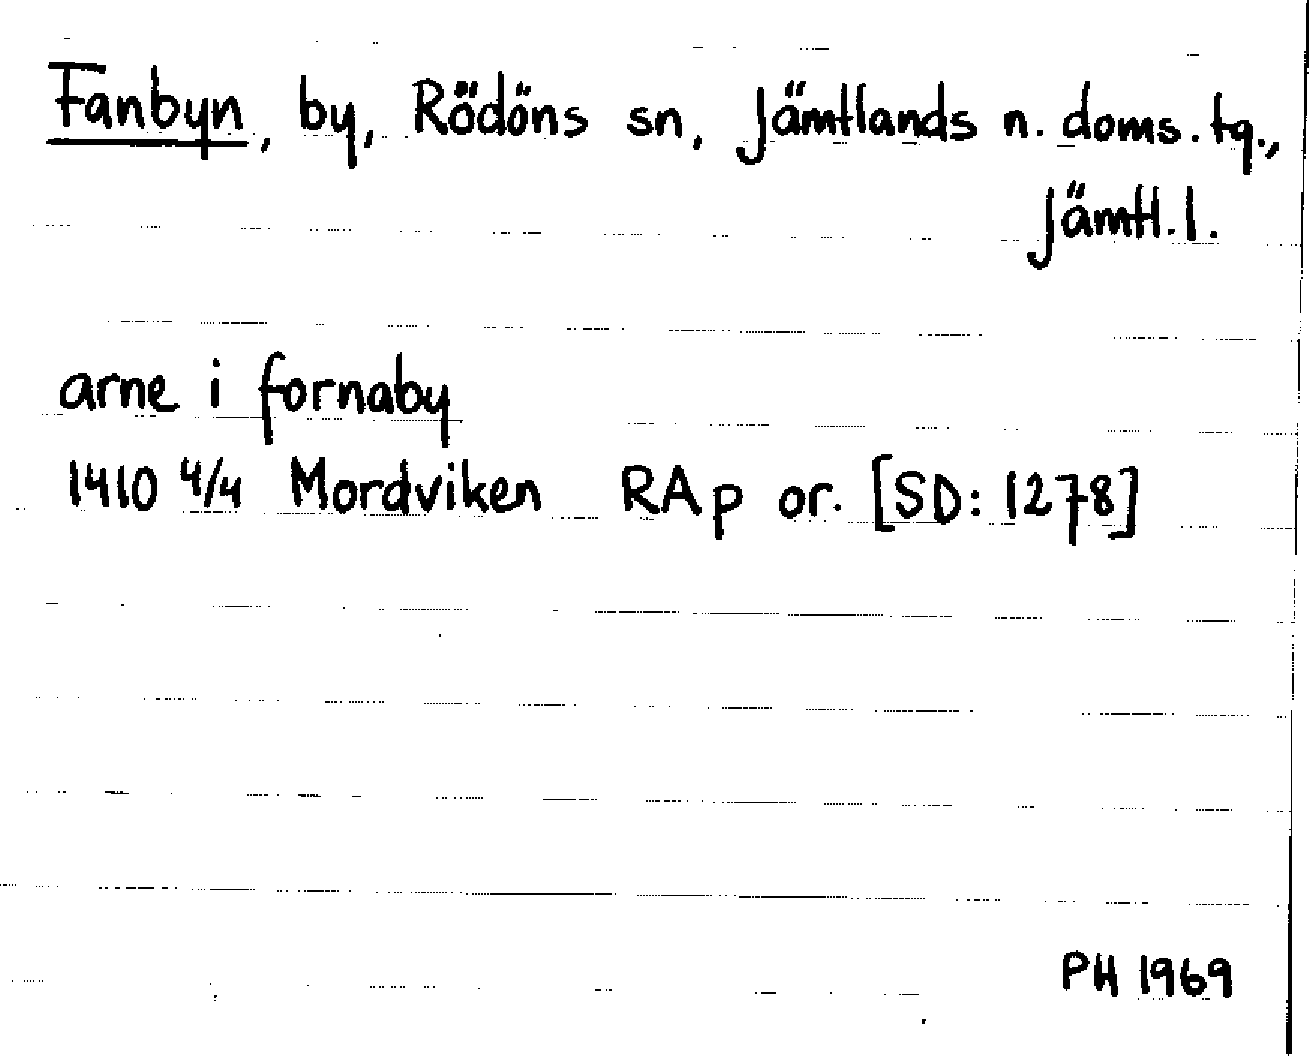 Fanbyn, by, Rödöns sn, Jämtlands n. doms. tg.,
Jämtl. l.
arne i fornaby
1410 4/4 Mordviken RAp or. [SD: 1278]
PH 1969